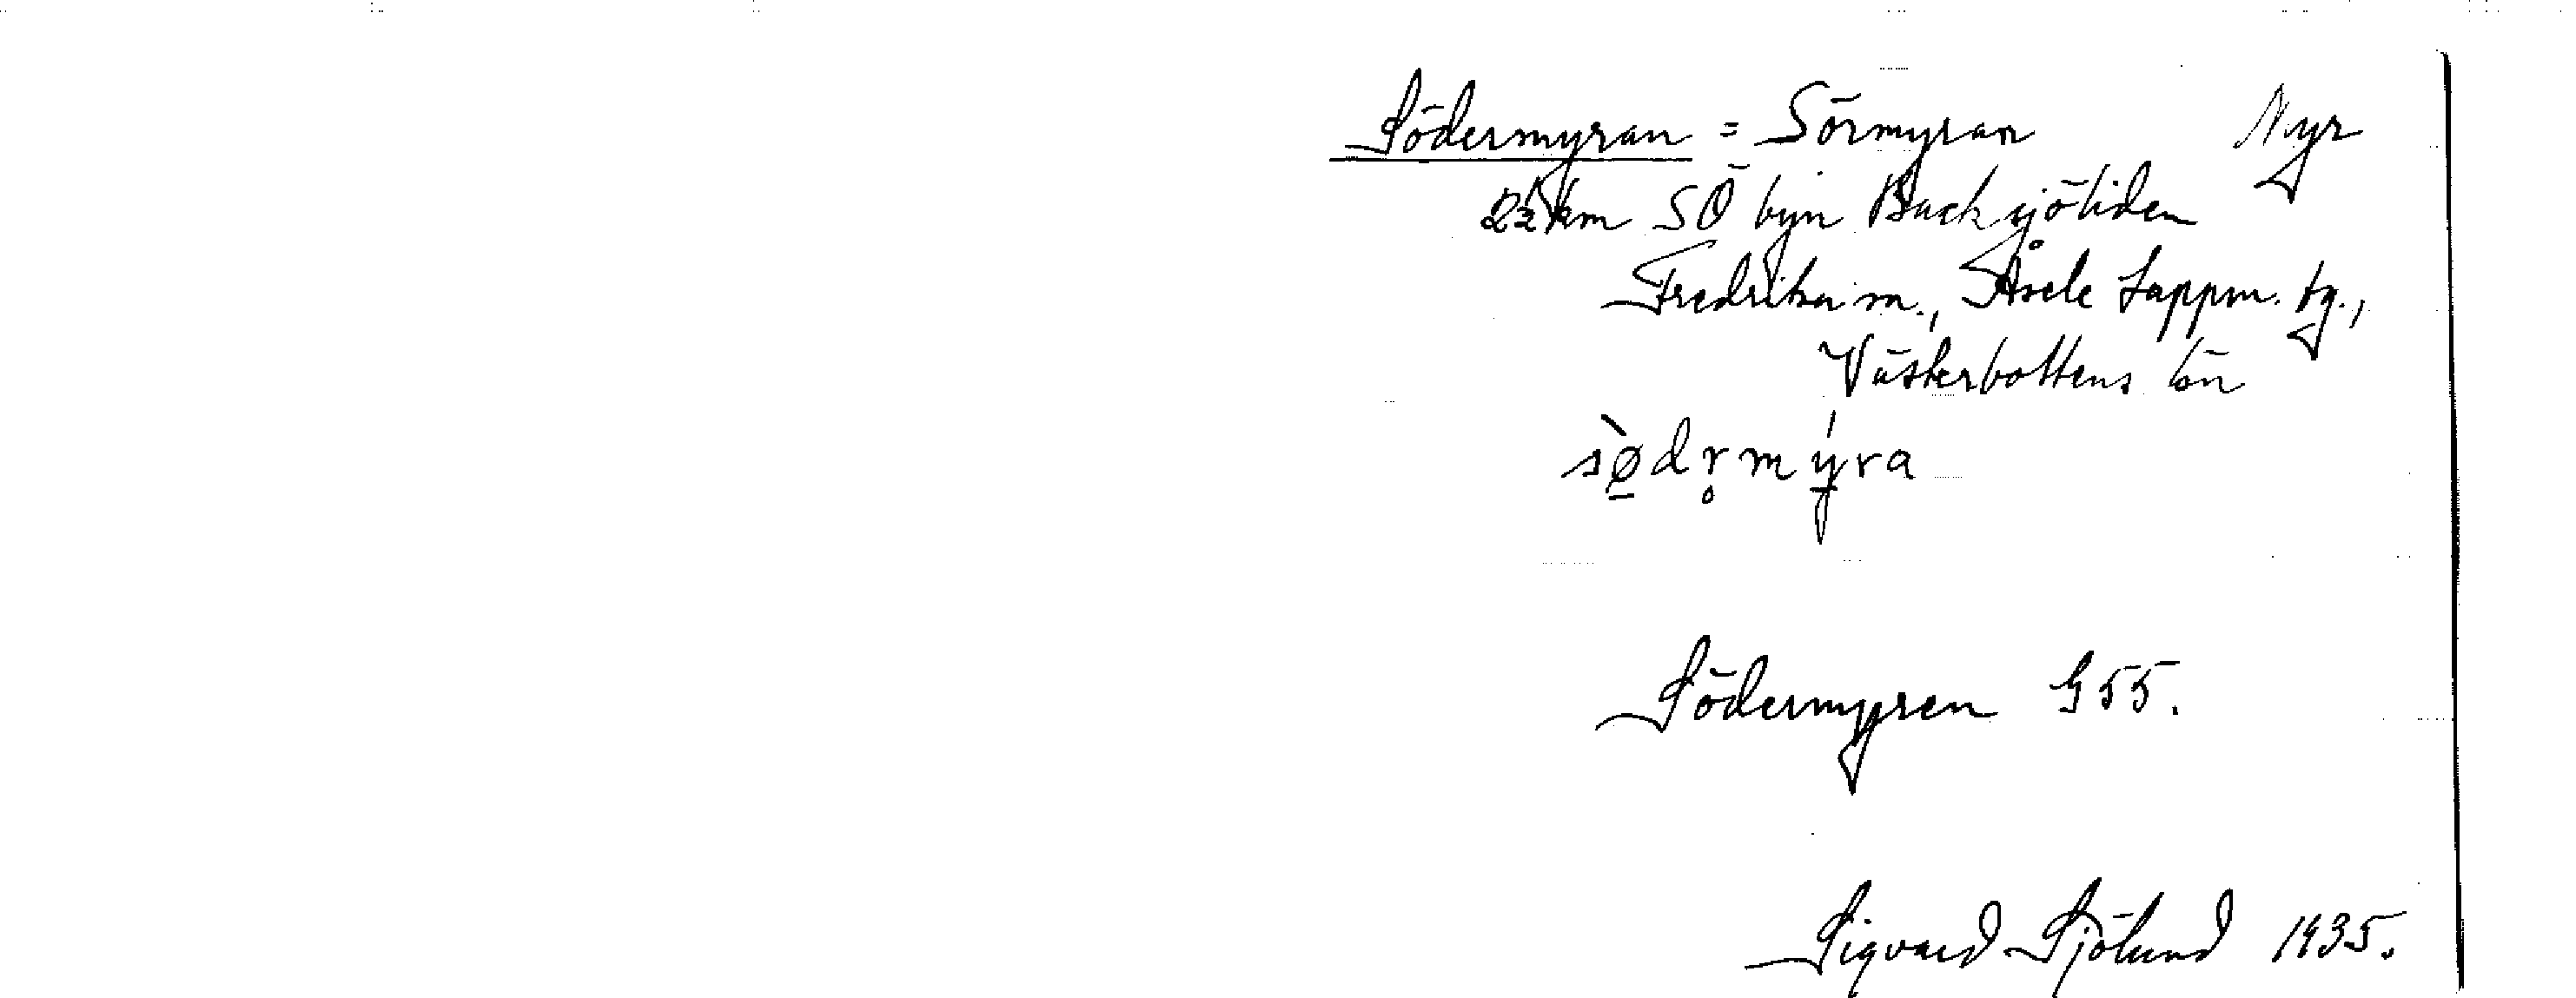 Södermyran = Sörmyran Myr
2½ km SÖ byn Backsjöliden
Fredrika sn., Åsele Lappm. tg.,
Västerbottens län
sø̠̀dr̥mý̠ra
Södermyren G55.
Sigvard Sjölund 1935.